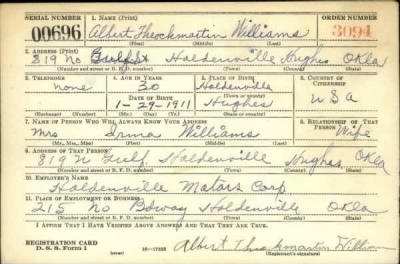 SERIAL NUMBER 1. NAME (Print) ORDER NUMBER
00696 Albert Theockmartin Williams 3094
(First) (Middle) (Last)
2. ADDRESS (Print)
819 No Holdenville Hughes Okla
(Number and street or R. F. D. number) (Town) (County) (State)
3. TELEPHONE 4. AGE IN YEARS 5. PLACE OF BIRTH 6. COUNTRY OF CITIZENSHIP
none 30 Holdenville
DATE OF BIRTH (Town or county)
1-29-1911 Hughes USA
(Exchange) (Number) (Mo.) (Day) (Yr.) (State or country)
7. NAME OF PERSON WHO WILL ALWAYS KNOW YOUR ADDRESS 8. RELATIONSHIP OF THAT PERSON
Mrs Irma Williams Wife
(Mr., Mrs., Miss) (First) (Middle) (Last)
9. ADDRESS OF THAT PERSON
819 N Gulf, Holdenville Hughes, Okla
(Number and street or R. F. D. number) (Town) (County) (State)
10. EMPLOYER'S NAME
Holdenville Motors Corp
11. PLACE OF EMPLOYMENT OR BUSINESS
215 No Bdway Holdenville Okla
(Number and street or R. F. D. number) (Town) (County) (State)
I AFFIRM THAT I HAVE VERIFIED ABOVE ANSWERS AND THAT THEY ARE TRUE.
REGISTRATION CARD
D. S. S. Form 1 16—17105 Albert Theockmartin Williams
(Registrant's signature)